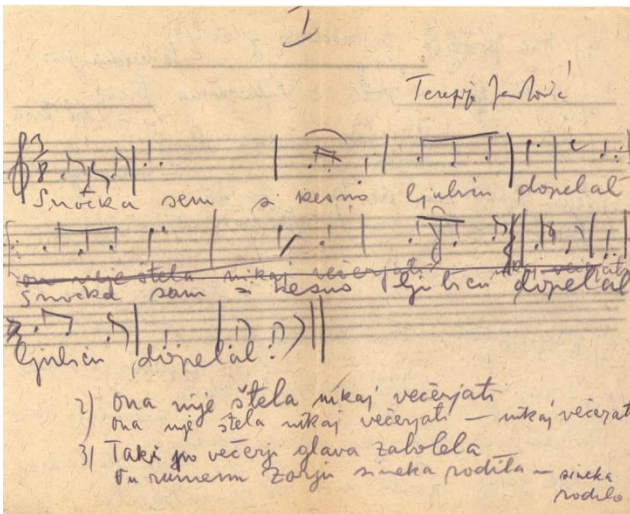 I
3/8
Snočka sem si kesno ljubicu dopelal
ona nije štela nikaj večerjati nikaj večerjati
Snočka sam kesno ljubicu dopelal
ljubicu dopelal
2) ona nije štela nikaj večerjati
ona nije štela nikaj večerjati – nikaj večerjat
3) Taki po večerji glava zabolela
rumenu zorju sineka rodila – sineka
rodila